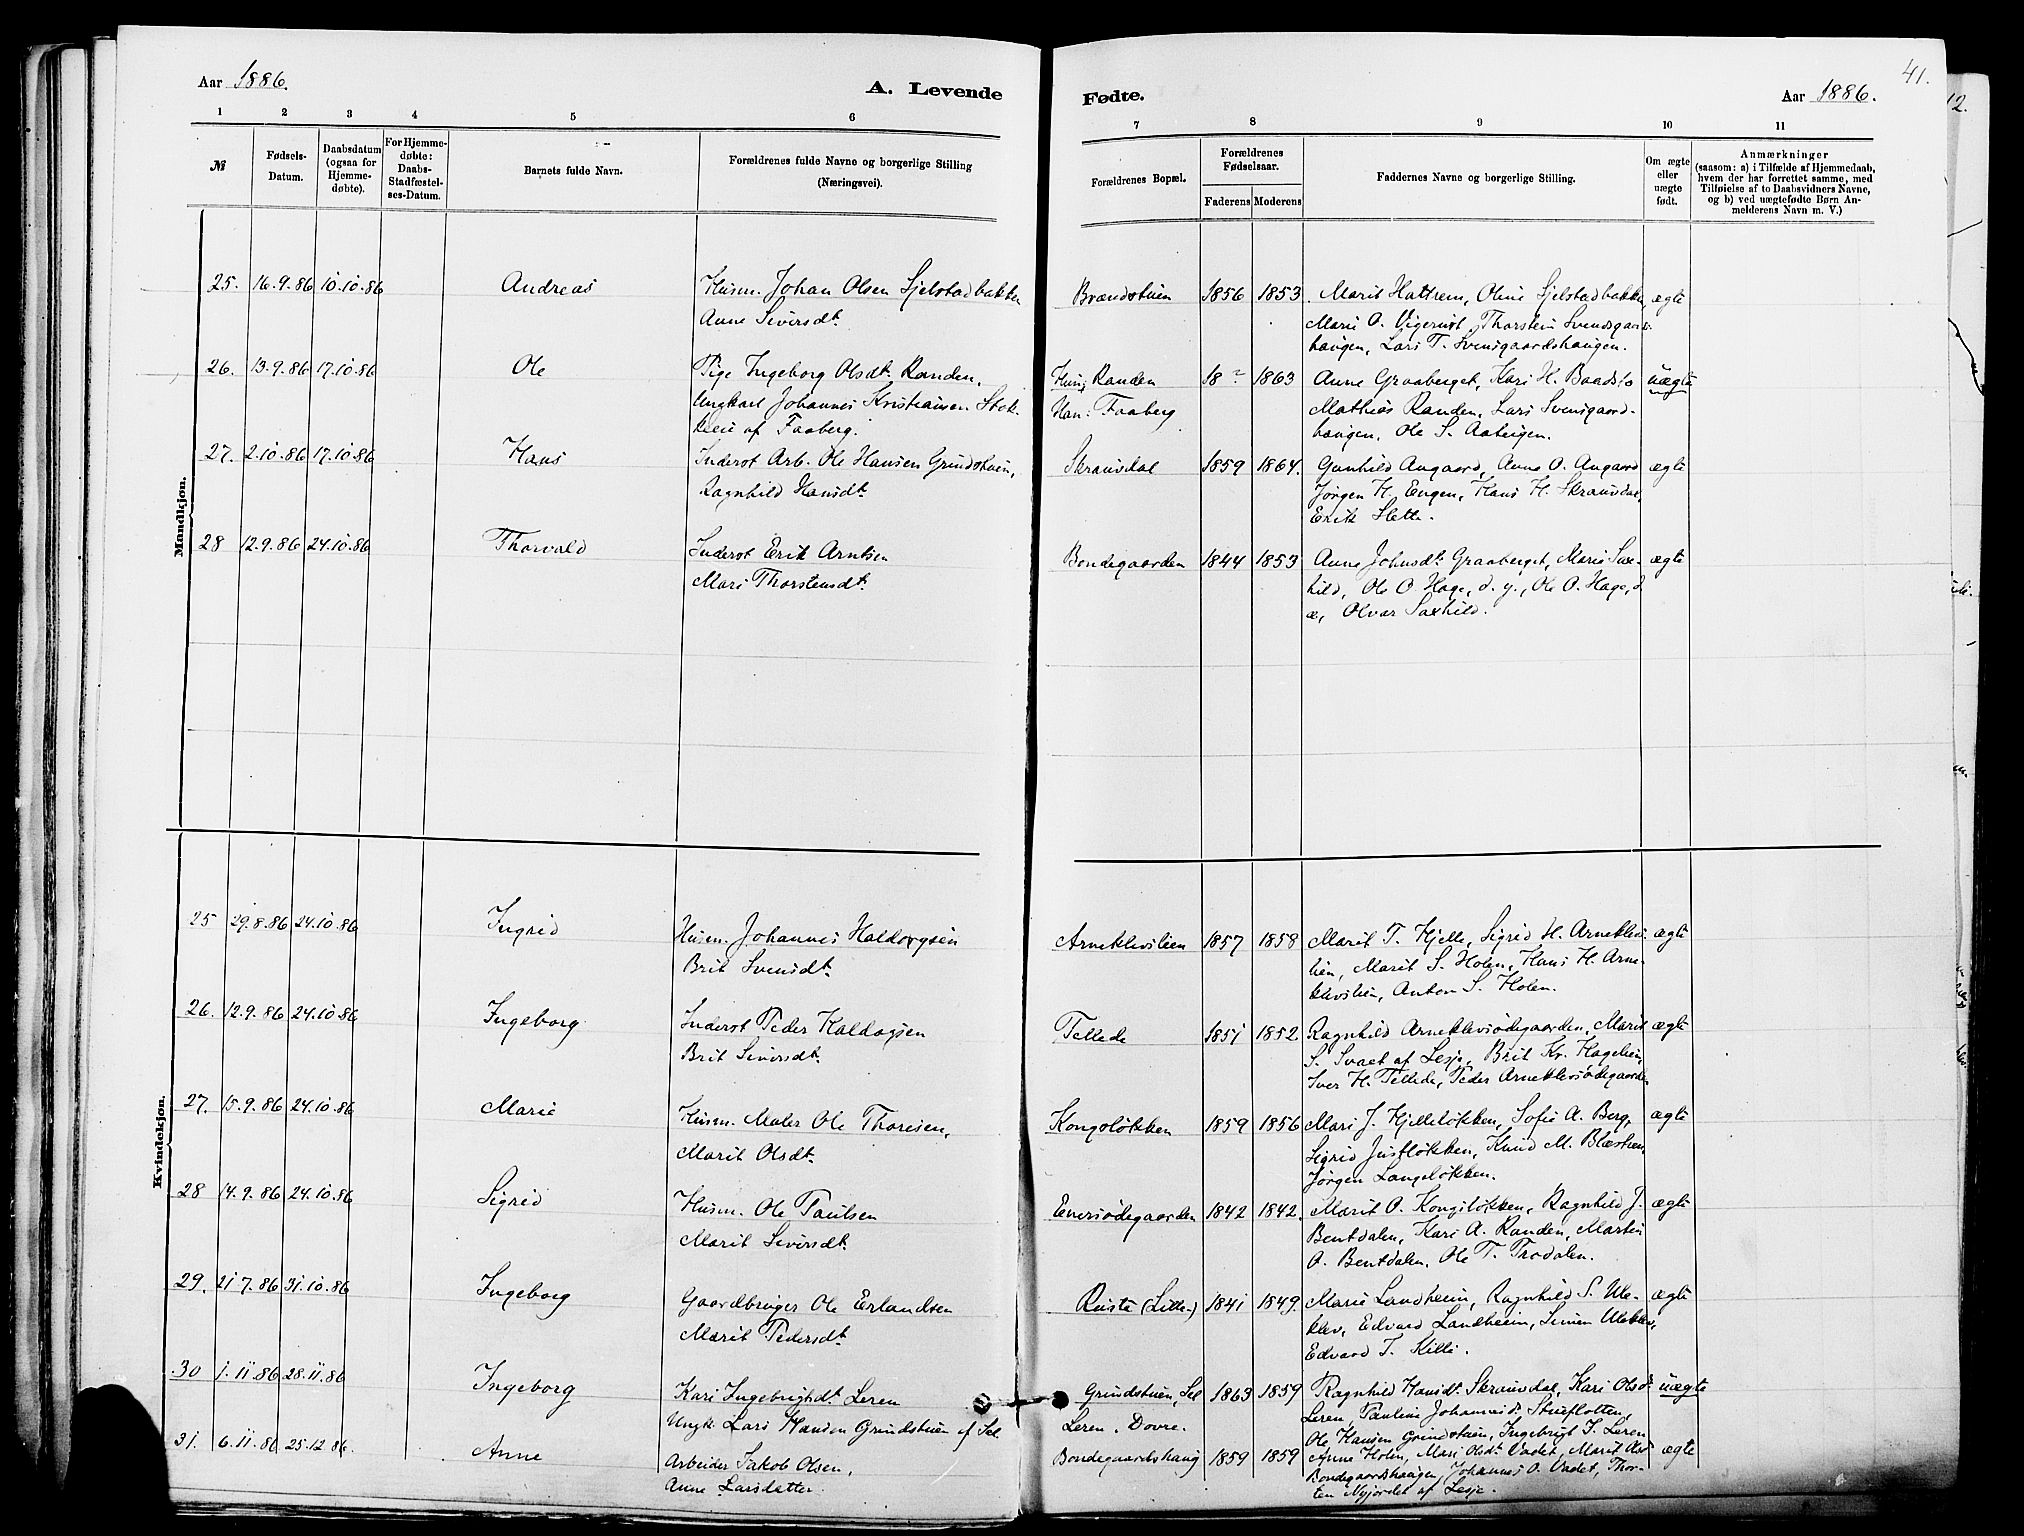 Aar 1886.
A. Levende
1 2 3 4 5 6
№
Fødsels-Datum.
Daabsdatum (ogsaa for Hjemme-døbte).
For Hjemme-døbte: Daabs-Stadfæstel-ses-Datum.
Barnets fulde Navn.
Forældrenes fulde Navne og borgerlige Stilling
(Næringsvei).
Mandkjøn.
25. 16.9.86 10.10.86 Andreas Husm. Johan Olsen Sjelstadbakken
Anne Siversdt.
26. 13.9.86 17.10.86 Ole Pige Ingeborg Olsdt. Randen,
Ungkarl Johannes Kristiansen Stok-
af Faaberg.
27. 2.10.86 17.10.86 Hans Inderst Arb. Ole Hansen Grindstuen,
Ragnhild Hansdt.
28 12.9.86 24.10.86 Thorvald Inderst Erik Arntsen
Mari Thorstensdt.
Kvindekjøn.
25 29.8.86 24.10.86 Ingrid Husm. Johannes Haldorgsen
Brit Svensdt.
26. 12.9.86 24.10.86 Ingeborg Inderst Peder Haldogsen
Brit Siversdt.
27. 15.9.86 24.10.86 Marie Husm. Maler Ole Thoresen,
Marit Olsdt.
28 14.9.86 24.10.86 Sigrid Husm. Ole Paulsen
Marit Siversdt.
29. 21.7.86 31.10.86 Ingeborg Gaardbruger Ole Erlandsen
Marit Pedersdt.
30 1.11.86 28.11.86 Ingeborg Kari Ingebrigtsdt. Leren
Ungk. Lars Hansen Grindstuen af Sel
31. 6.11.86 25.12.86. Anne Arbeider Jakob Olsen,
Anne Larsdatter
41.
Fødte.
Aar 1886.
7 8 9 10 11
Forældrenes Bopæl.
Forældrenes Fødselsaar.
Faderens Moderens
Faddernes Navne og borgerlige Stilling.
Om ægte eller uægte født.
Anmærkninger
(saasom: a) i Tilfælde af Hjemmedaab,
hvem der har forrettet samme, med
Tilføielse af to Daabsvidners Navne,
og b) ved uægtefødte Børn An-
melderens Navn m. V.)
Brændstuen 1856 1853 Marit Hattrem, Oline Sjelstadbakken, ægte
Marie O. Vigerust, Thorstein Svensgaards-
haugen, Lars T. Svensgaardshaugen.
Hun: Randen 18? 1863 Anne Graaberget, Kari H. Baadslo uægte
Han: Faaberg Mathias Randen, Lars Svensgaard-
haugen, Ole S. Aabergen.
Skrausdal 1859 1864. Gunhild Angaard, Anne O. Angaard ægte
Jørgen H. Engen, Hans H. Skrausdal,
Erik Slette.
Bondegaarden 1844 1853 Anne Johnsdt. Graaberget, Marie Sax- ægte
hild, Ole O. Hage, d. y., Ole O. Hage, d.
æ., Olvar Saxhild.
Arneklevslien 1857 1858 Marit T. Hjelle, Sigrid H. Arneklevs- ægte
lien, Marit S. Holen, Hans H. Arne-
klevslien, Anton S. Holen.
Tellede 1851 1852. Ragnhild Arneklevsødegaarden, Marit ægte
S. Svaet af Lesje, Brit Kr. Hagelien,
Iver H. Tellede, Peder Arneklevsødegaarden
Kongsløkken 1859 1856 Mari J. Hjelleløkken, Sofie A. Berg, ægte
Sigrid Justløkken, Knud M. Blæstuen,
Jørgen Langeløkken.
Enersødegaarden 1842 1842. Marit O. Kongsløkken, Ragnhild J. ægte
Bentdalen, Kari A. Randen, Martin
O. Bentdalen, Ole T. Trodalen.
Ruste (Litle) 1841 1849. Marie Landheim, Ragnhild S. Ule- ægte
klev, Edvard Landheim, Simen Uleklev,
Edvard T. Killi.
Grindstuen, Sel 1863 1859 Ragnhild Hansdt. Skrausdal, Kari Olsdt. uægte
Leren, Dovre. Leren, Pauline Johannesdt. Stueflotten,
Ole Hansen Grindstuen, Ingebrigt I. Leren
Bondegaardshaug 1859 1859 Anne Holen, Mari Olsdt. Vadet, Marit ægte
Bondegaardshaugen, Johannes O. Vadet, Thor-
Nyjordet af Lesje.